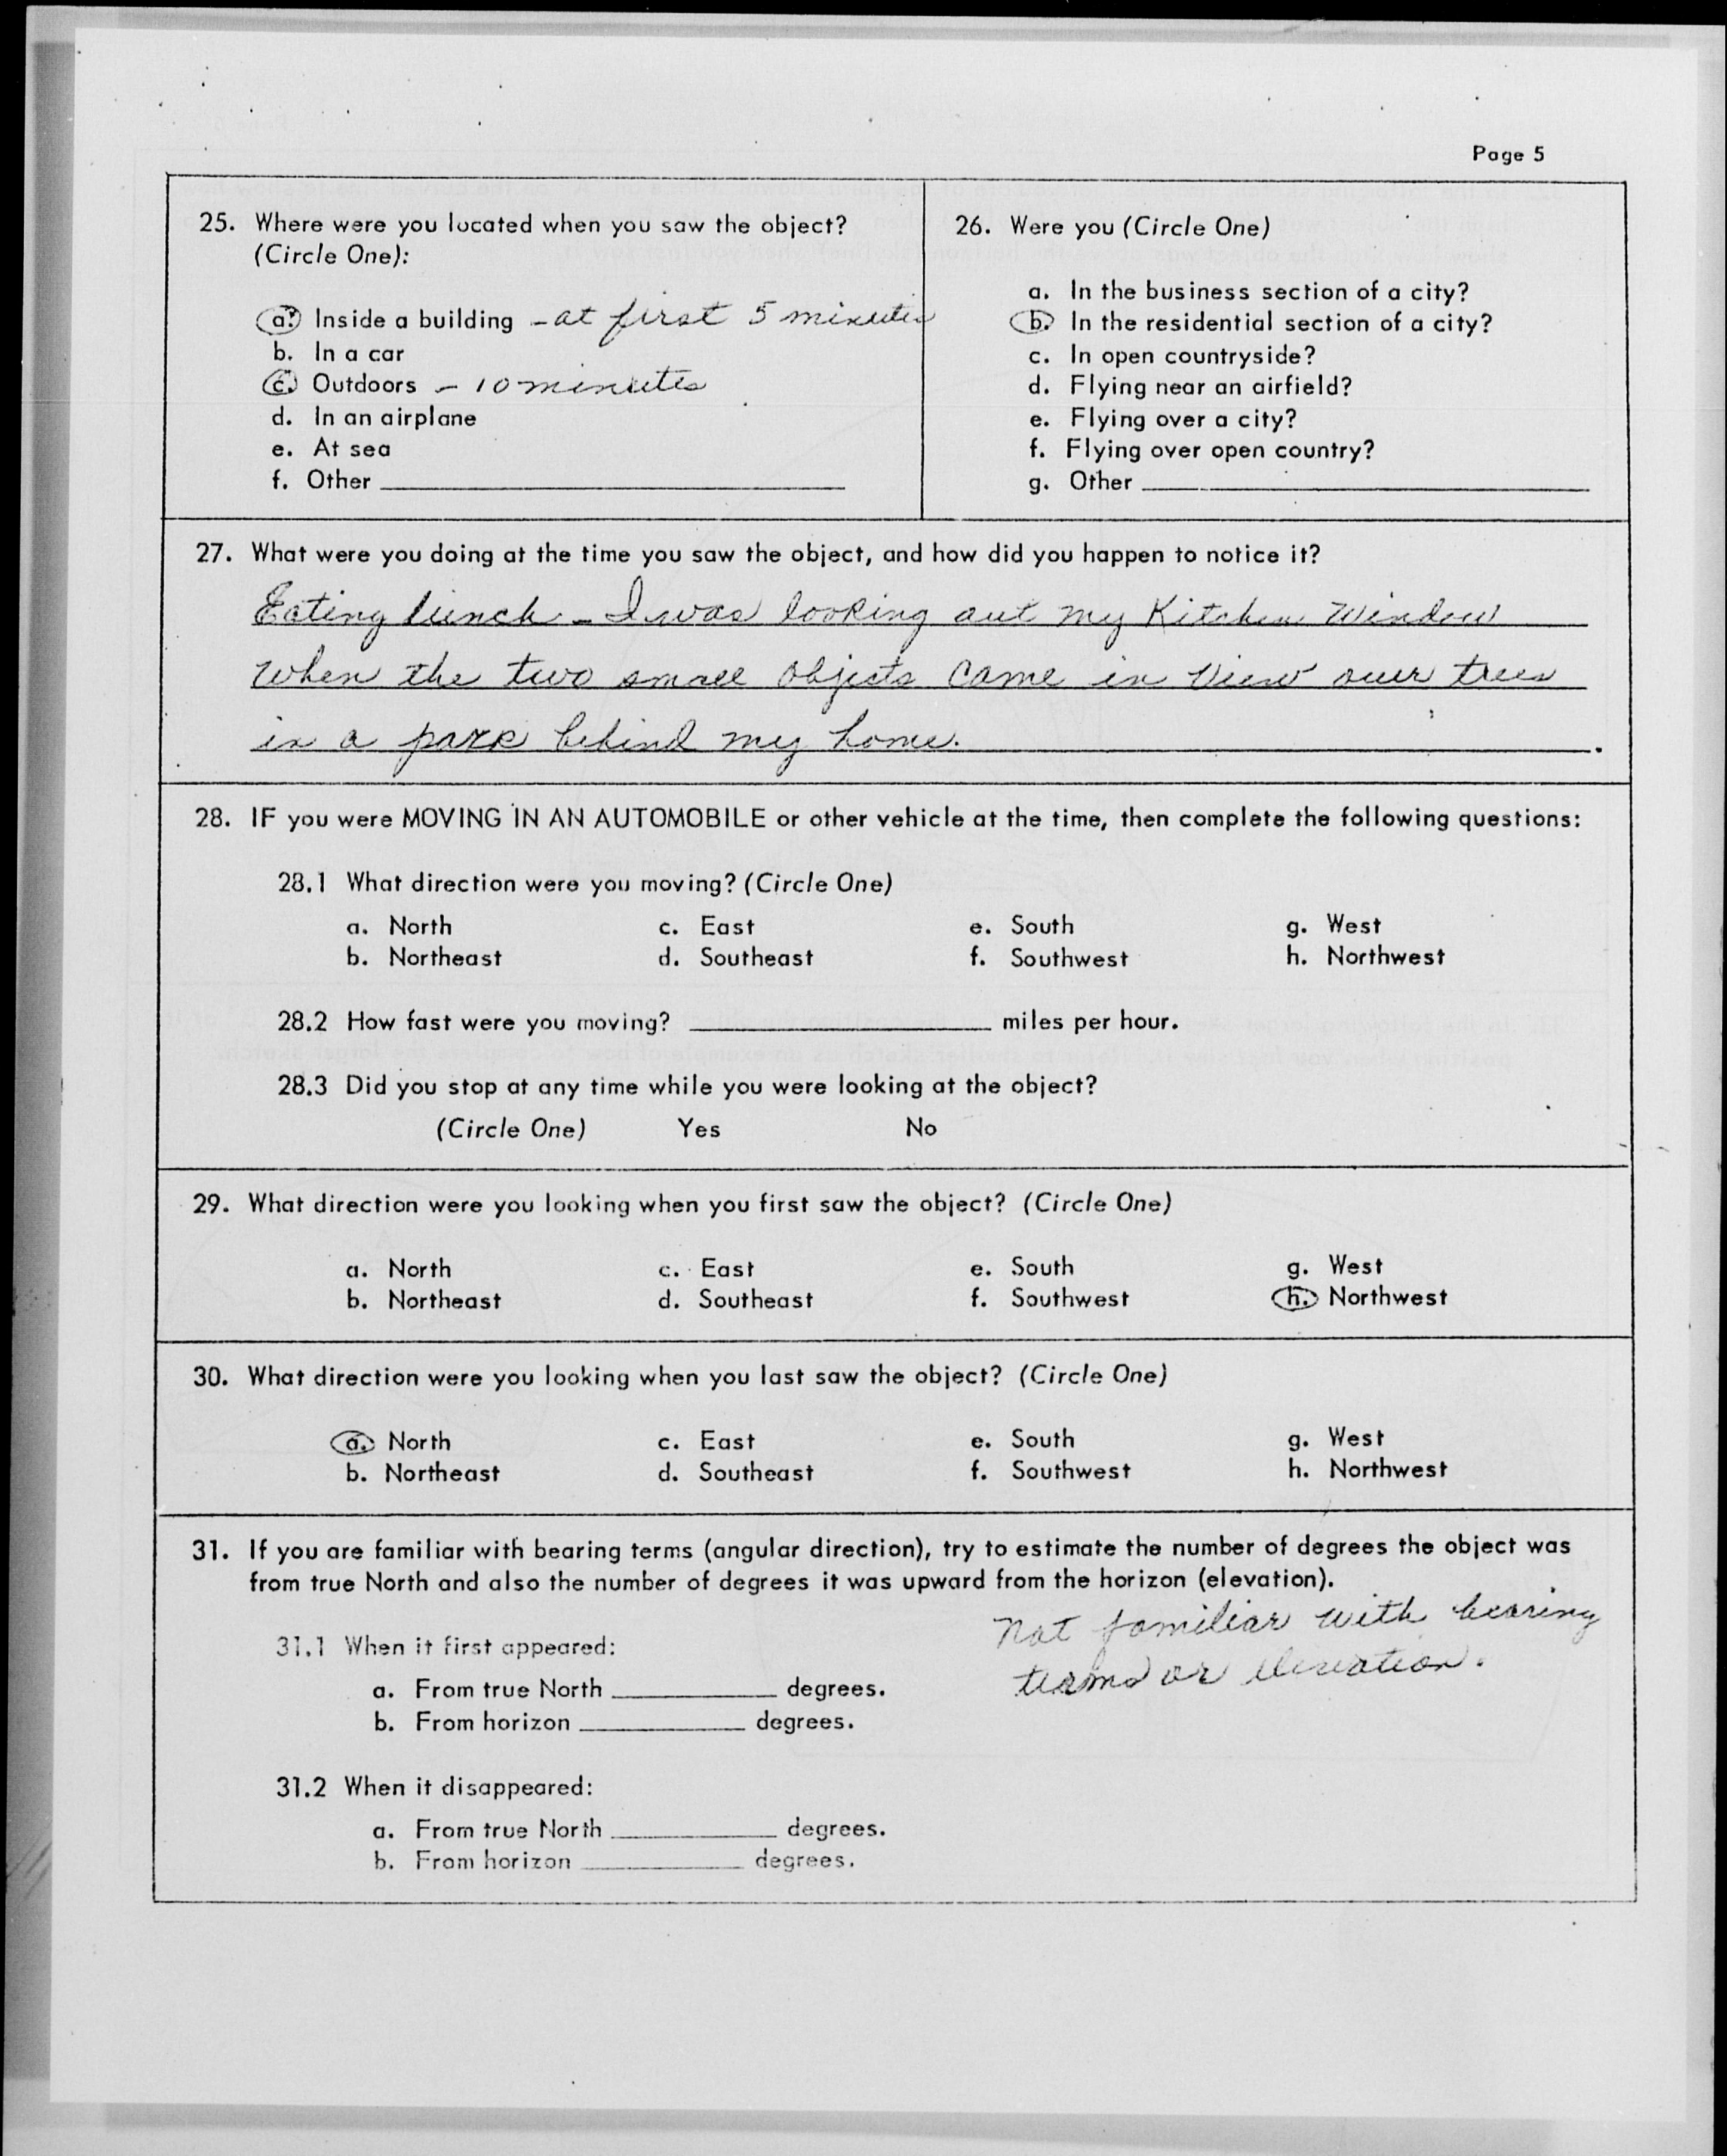 Page 5
25. Where were you located when you saw the object?
(Circle One):
a. Inside a building - at first 5 minutes
b. In a car
c. Outdoors - 10 minutes
d. In an airplane
e. At sea
f. Other
26. Were you (Circle One)
a. In the business section of a city?
b. In the residential section of a city?
c. In open countryside?
d. Flying near an airfield?
e. Flying over a city?
f. Flying over open country?
g. Other
27. What were you doing at the time you saw the object, and how did you happen to notice it?
Eating lunch - I was looking out my Kitchen Window
when the two small objects came in view over trees
in a park behind my home.
28. IF you were MOVING IN AN AUTOMOBILE or other vehicle at the time, then complete the following questions:
28.1 What direction were you moving? (Circle One)
a. North c. East e. South g. West
b. Northeast d. Southeast f. Southwest h. Northwest
28.2 How fast were you moving? miles per hour.
28.3 Did you stop at any time while you were looking at the object?
(Circle One) Yes No
29. What direction were you looking when you first saw the object? (Circle One)
a. North c. East e. South g. West
b. Northeast d. Southeast f. Southwest h. Northwest
30. What direction were you looking when you last saw the object? (Circle One)
a. North c. East e. South g. West
b. Northeast d. Southeast f. Southwest h. Northwest
31. If you are familiar with bearing terms (angular direction), try to estimate the number of degrees the object was
from true North and also the number of degrees it was upward from the horizon (elevation).
not familiar with bearing
terms or elevation.
31.1 When it first appeared:
a. From true North degrees.
b. From horizon degrees.
31.2 When it disappeared:
a. From true North degrees.
b. From horizon degrees.